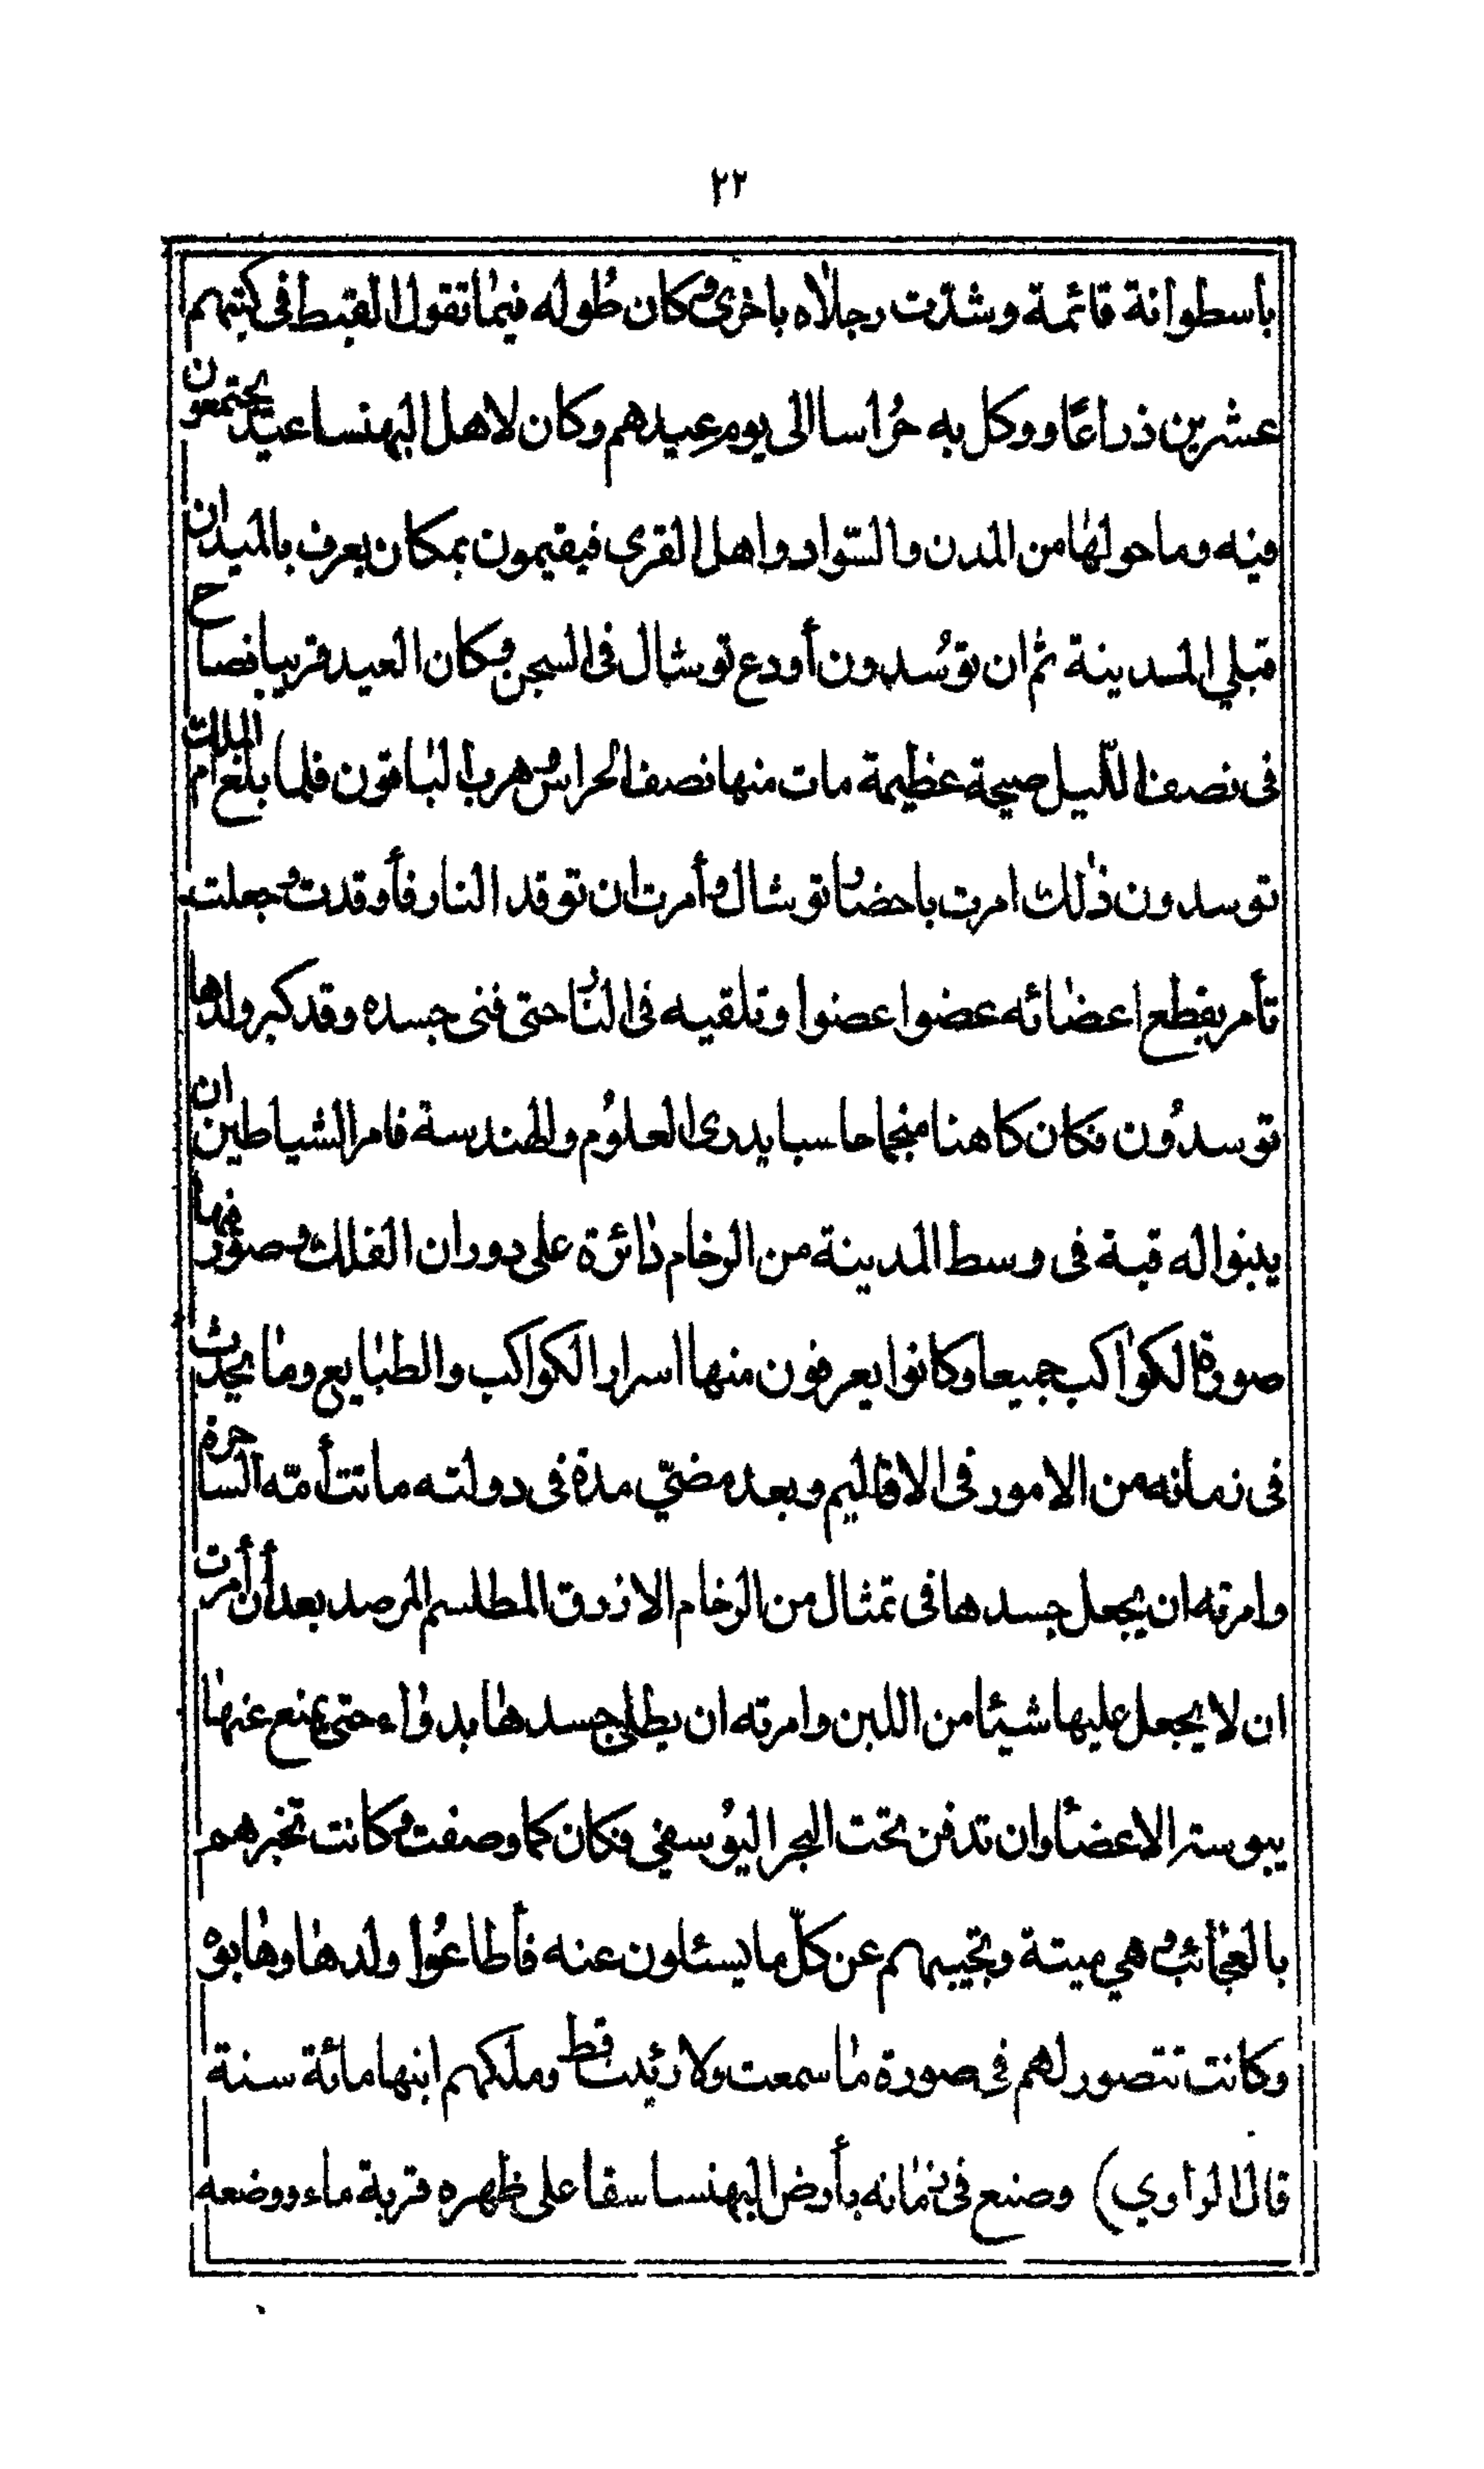 ٢٢
باسطوانة قائمة وشدّت رجلاه باخرى وكان طُوله فيما تقول القبط فى كتبهم
عشرين ذراعًا ووكل به حُراسا الى يوم عِيدهم وكان لاهل البهنسا عيد يجتمعون
فيه وما حولها من المدن والسّواد واهل القرى فيقيمون بمكان يعرف بالميدان
قبلي المدينة ثم ان توسُدون أودع توشال فى السجن وكان العيد قريبا فصاح
فى نصف اللّيل صيحة عظيمة مات منها نصف الحراس وهرب الباقون فلما بلغ ام الملك
توسدون ذلك امرت باحضار توشال وأمرت ان توقد النار فأوقدت وجعلت
تأمر بقطع اعضائه عضوا عضوا وتلقيه فى النار حتى فنى جسده وقد كبر ولدها
توسدُون فكان كاهنا منجما حاسبا يدرى العلوُم والهندسة فامر الشياطين ان
يبنوا له قبة فى وسط المدينة من الرخام دائرة على دوران الفلك وصوّر فيها
صورة الكواكب جميعا وكانوا يعرفون منها اسرار الكواكب والطبايع وما يحدث
فى زمانه من الامور فى الاقاليم وبعد مضىّ مدة فى دولته ماتت أمّه الساحرة
وامرته ان يجعل جسدها فى تمثال من الرخام الازرق المطلسم المرصد بعد أن أمرت
ان لا يجعل عليها شيئا من اللبن وامرته ان يطلى جسدها بدواء حتى يمنع عنها
يبوسة الاعضأ وان تدفن تحت البحر اليوُسفي فكان كما وصفت وكانت تخبرهم
بالعجائب وهي ميتة وتجيبهم عن كلّ ما يسئلون عنه فأطاعُوا ولدها وهابوه
وكانت تتصور لهم فى صورة ما سمعت ولا رئيت قط وملكهم ابنها مائة سنة
قال الراوي) وصنع فى زمانه بأرض البهنسا سقا على ظهره قربة ماء ووضعه